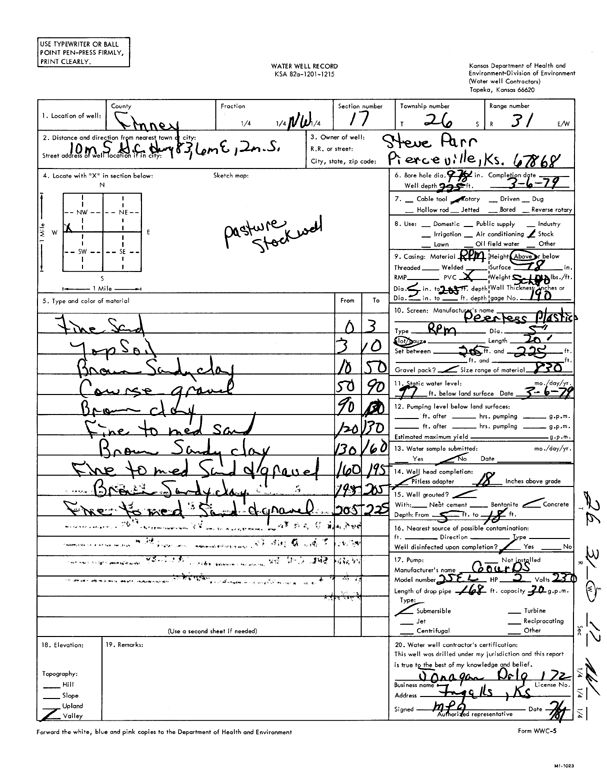 USE TYPEWRITER OR BALL
POINT PEN-PRESS FIRMLY,
PRINT CLEARLY.
WATER WELL RECORD
KSA 82a-1201-1215
Kansas Department of Health and
Environment-Division of Environment
(Water well Contractors)
Topeka, Kansas 66620
1. Location of well: County Finney Fraction 1/4 1/4 NW 1/4 Section number 17 Township number T 26 S Range number R 31 E/W
2. Distance and direction from nearest town or city: 10m S G.C. Hwy 83, 6m E, 2m. S.
Street address of well location if in city:
3. Owner of well: Steve Parr
R.R. or street:
City, state, zip code: Pierceville, Ks. 67868
4. Locate with "X" in section below: Sketch map:
N
NW NE
W X E
SW SE
S
1 Mile
1 Mile
pasture
stockwell
6. Bore hole dia. 9 7/8 in. Completion date 3-6-79
Well depth 225 ft.
7. Cable tool Rotary Driven Dug
Hollow rod Jetted Bored Reverse rotary
8. Use: Domestic Public supply Industry
Irrigation Air conditioning Stock
Lawn Oil field water Other
9. Casing: Material RPM Height: Above or below
Threaded Welded Surface 18 in.
RMP PVC X Weight lbs./ft.
Dia. 5 in. to 205 ft. depth Wall Thickness: inches or
Dia. in. to ft. depth gage No. 190
5. Type and color of material From To
Fine Sand 0 3
Top Soil 3 10
Brown Sandy clay 10 50
Course gravel 50 90
Brown clay 90
Fine to med sand 120 130
Brown Sandy clay 130 160
Fine to med Sand & gravel 160 195
Brown Sandy clay 195 205
Fine to med Sand & gravel 205 225
(Use a second sheet if needed)
10. Screen: Manufacturer's name
Peerless Plastics
Type RPM Dia. 5"
Slot/gauze Length 20'
Set between 205 ft. and 225 ft.
ft. and ft.
Gravel pack? Size range of material 830
11. Static water level: mo./day/yr.
97 ft. below land surface Date 3-6-79
12. Pumping level below land surfaces:
ft. after hrs. pumping g.p.m.
ft. after hrs. pumping g.p.m.
Estimated maximum yield g.p.m.
13. Water sample submitted: mo./day/yr.
Yes No Date
14. Well head completion:
Pitless adapter 18 Inches above grade
15. Well grouted?
With: Neat cement Bentonite Concrete
Depth: From 5 ft. to 18 ft.
16. Nearest source of possible contamination:
ft. Direction Type
Well disinfected upon completion? Yes No
17. Pump: Not installed
Manufacturer's name Goulds
Model number 25EL HP 2 Volts 230
Length of drop pipe 168 ft. capacity 30 g.p.m.
Type:
Submersible Turbine
Jet Reciprocating
Centrifugal Other
18. Elevation:
Topography:
Hill
Slope
Upland
Valley
19. Remarks:
20. Water well contractor's certification:
This well was drilled under my jurisdiction and this report
is true to the best of my knowledge and belief.
Donagan Drlg 172
Business name License No.
Address Ingalls, Ks
Signed Date
Authorized representative
Forward the white, blue and pink copies to the Department of Health and Environment
Form WWC-5
26
31
W
17
Sec
1/4 1/4 1/4